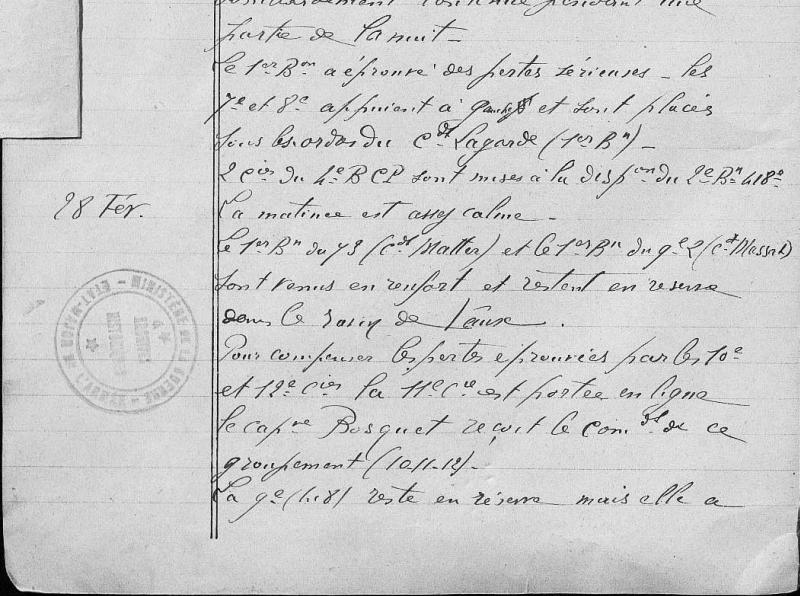 bombardement continue pendant une
partie de la nuit -
Le 1er Bon a éprouvé des pertes sérieuses - les
7e et 8e appuient à gauche et sont placés
sous les ordres du Cdt Lagarde (1er Bn) -
2 Cies du 4e BCP sont mises à la dispon du 2e Bn 418e
28 Fév.
La matinée est assez calme -
Le 1er Bn du 79 (Cdt Matter) et le 1er Bn du 9e Z (Ct Massat)
sont venus en renfort et restent en réserve
dans le ravin de
Pour compenser les pertes éprouvées par les 10e
et 12e Cies la 11e Cie est portée en ligne
le capne Bosquet reçoit le comdt de ce
groupement (10.11-12) -
La 9e (418) reste en réserve mais elle a
MINISTÈRE DE LA GUERRE - ÉTAT-MAJOR DE L'ARMÉE -
SERVICE HISTORIQUE